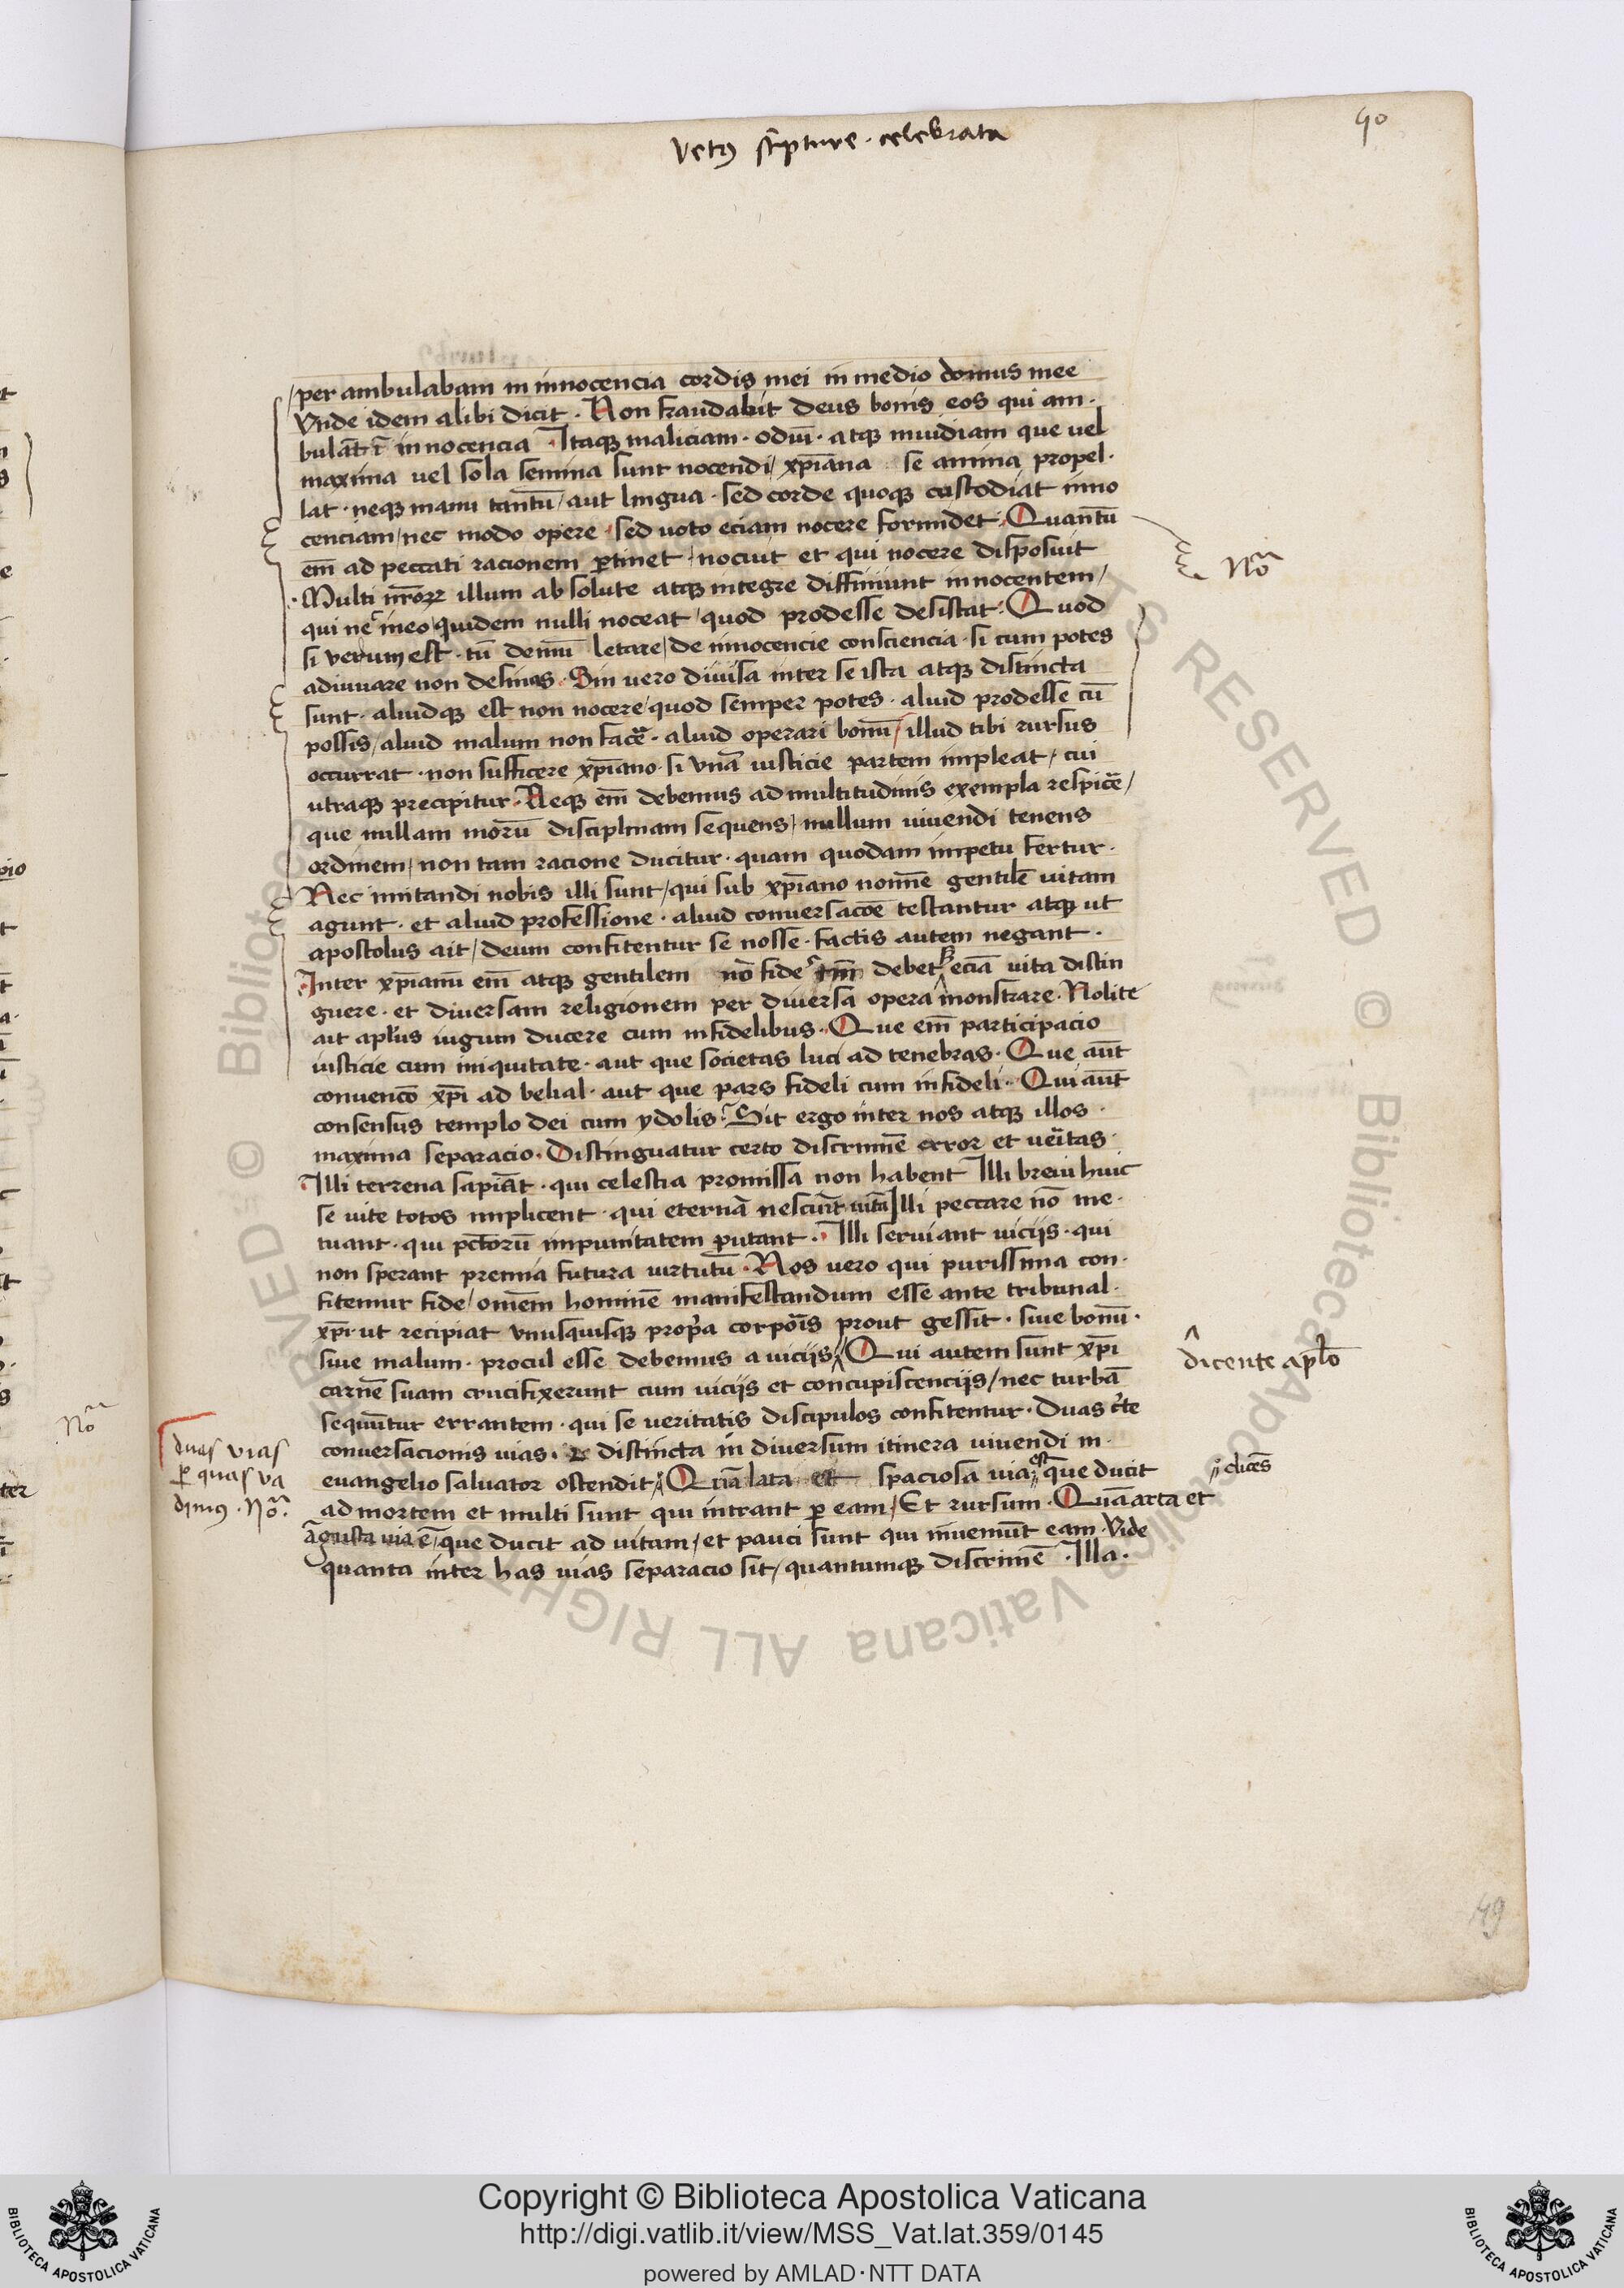 90
vetꝰ scͥpture · celebrata
per ambulabam in innocencia cordis mei in medio domus mee
vnde idem alibi dicit · Non fraudabit deus bonis eos qui am·
bulāt ī innocencia · Itaqꝫ maliciam · odiū · atqꝫ inuidiam que uel
maxima uel sola semina sunt nocendi / xp̄iana se anima propel·
lat · neqꝫ manu tantū / aut lingua · sed corde quoqꝫ custodiat inno
cenciam / nec modo opere · sed uoto eciam nocere formidet · Quantū
em̄ ad peccati racionem ꝑtinet / nocuit et qui nocere disposuit
· Multi nr̄oꝝ illum absolute atqꝫ integre diffiniunt innocentem /
qui ne ineo quidem nulli noceat / quod prodesse desistat · Quod
si verum est · tū demū letare / de innocencie consciencia · si cum potes
adiuuare non desinas · Sin uero diuisa inter se ista atqꝫ distincta
sunt · aliudqꝫ est non nocere / quod semper potes · aliud prodesse cū
possis / aliud malum non facer̄ · aliud operari bonū / illud tibi rursus
occurrat · non sufficere xp̄iano · si vnā iusticie partem impleat / cui
utraqꝫ precipitur · Neqꝫ em̄ debemus ad multitudinis exempla respicē /
que nullam morū disciplinam sequens / nullum uiuendi tenens
ordinem / non tam racione ducitur · quam quodam impetu fertur ·
Nec imitandi nobis illi sunt / qui sub xp̄iano nomīe gentilē uitam
agunt · et aliud professione · aliud conuersacōe testantur atqꝫ ut
apostolus ait / deum confitentur se nosse · factis autem negant ·
Inter xp̄ianū em̄ atqꝫ gentilem nō fide debet eciā uita distin
guere · et diuersam religionem per diuersa opera monstrare · Nolite
ait apl̄us iugum ducere cum infidelibus · Que em̄ participacio
iusticie cum iniquitate · aut que societas luci ad tenebras · Que aūt
conuencō xp̄i ad belial · aut que pars fideli cum infideli · Qui aūt
consensus templo dei cum ydolis · Sit ergo inter nos atqꝫ illos ·
maxima separacio · Distinguatur certo discrimīe error et ueritas ·
Illi terrena sapiāt · qui celestia promissa non habent Illi breui huic
se uite totos implicent · qui eternā nesciūt uitā Illi peccare nō me·
tuant · qui pctorū impunitatem putant · Illi seruiant uicijs · qui
non sperant premia futura uirtutū · Nos uero qui purissima con·
fitemur fide / omēm hominē manifestandum esse ante tribunal ·
xp̄i · ut recipiat vnusquisqꝫ propͥa corpoīs prout gessit · siue bonū ·
siue malum · procul esse debemus a uicijs / Qui autem sunt xp̄i
dicente apl̄o
carnē suam crucifixerunt cum uicijs et concupiscencijs / nec turbā
sequūtur errantem · qui se ueritatis discipulos confitentur · Duas cͥte
conuersacionis uias · & distincta in diuersum itinera uiuendi in ·
euangelio saluator ostendit Quā lata et spaciosa uia est que ducit
dicēs
ad mortem et multi sunt qui intrant ꝑ eam / Et rursum · Quā arta et
āgusta uia ē / que ducit ad uitam / et pauci sunt qui inueniūt eam · Vide
quanta inter has uias separacio sit / quantumqꝫ discrimē · Illa ·
Noͣ
Noͣ
duas vias
ꝑ quas va
dimꝰ · Noͣ·
49
Copyright © Biblioteca Apostolica Vaticana
http://digi.vatlib.it/view/MSS_Vat.lat.359/0145
powered by AMLAD·NTT DATA
BIBLIOTECA APOSTOLICA VATICANA
BIBLIOTECA APOSTOLICA VATICANA